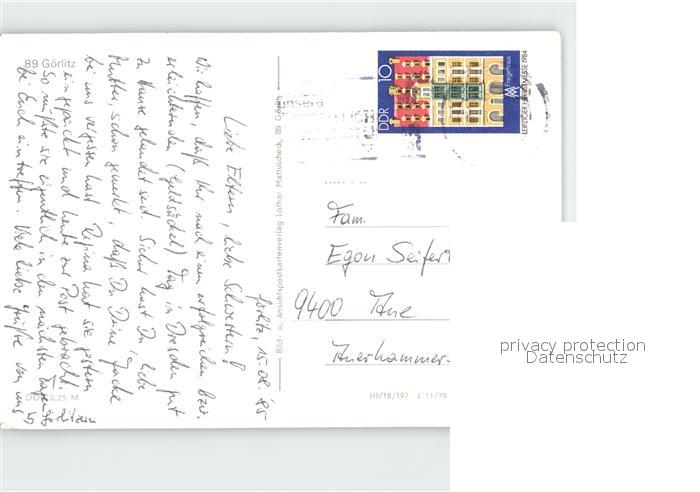 89 Görlitz
Görlitz, 15.08.85
Liebe Eltern, liebe Schwestern!
Wir hoffen, daß Ihr nach einem erfolgreichen bzw.
erleichternden (Geldsäckel) Tag in Dresden gut
zu Hause gelandet seid. Sicher hast Du, liebe
Mutter, schon gemerkt, daß Du Deine Jacke
bei uns vergessen hast. Regina hat sie gestern
eingepackt und heute zur Post gebracht.
So müßte sie eigentlich in den nächsten Tagen
bei Euch eintreffen. Viele liebe Grüße von uns
5
DDR 0,25 M
Bild- u. Ansichtspostkartenverlag Lothar Mattuscheck, 89 Görlitz
DDR 10
Fregehaus
MM
LEIPZIGER HERBSTMESSE 1984
unsere
Fam.
Egon Seifert
9400 Aue
Auerhammer-
III/18/197 J 11/79
privacy protection
Datenschutz